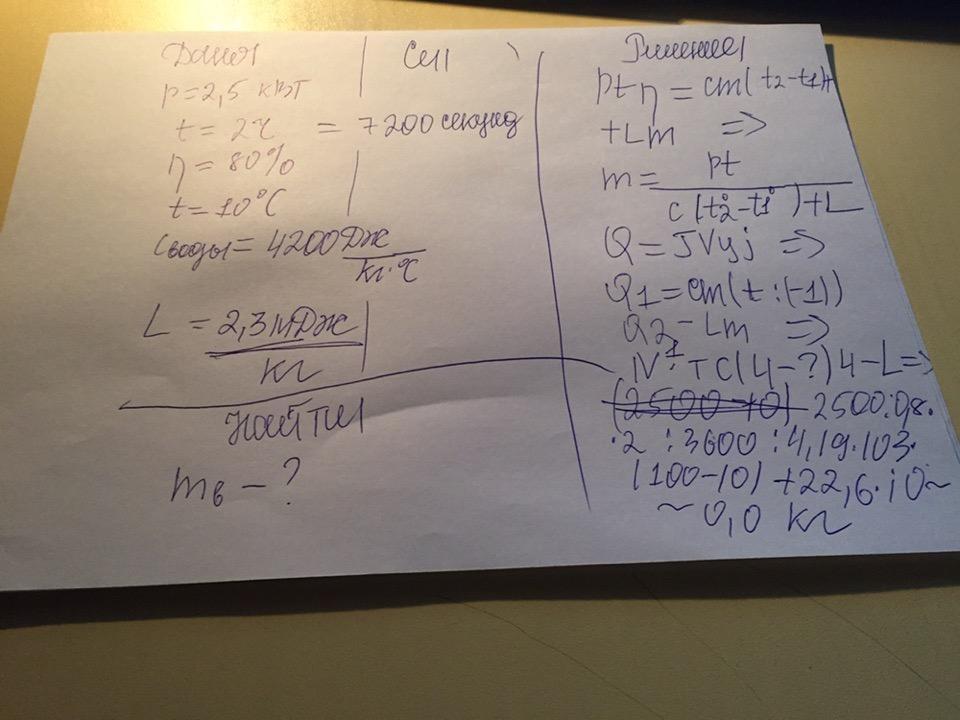 Дано
p = 2,5 кВт
t = 2ч = 7200 секунд
η = 80%
t = 10°C
Cводы = 4200 Дж/кг·°C
L = 2,3 мДж/кг
Найти
mв - ?
Си
Решение
Ptη = cm(t2-t1)+
+Lm =>
m = pt/c(t2°-t1°)+L
Q = JVyj =>
Q1 = cm(t:(-1))
Q2 - Lm =>
TC(4-?)4-L=>
2500:08·
·2:3600:4,19·103·
(100-10)+22,6·10~
~0,0 кг